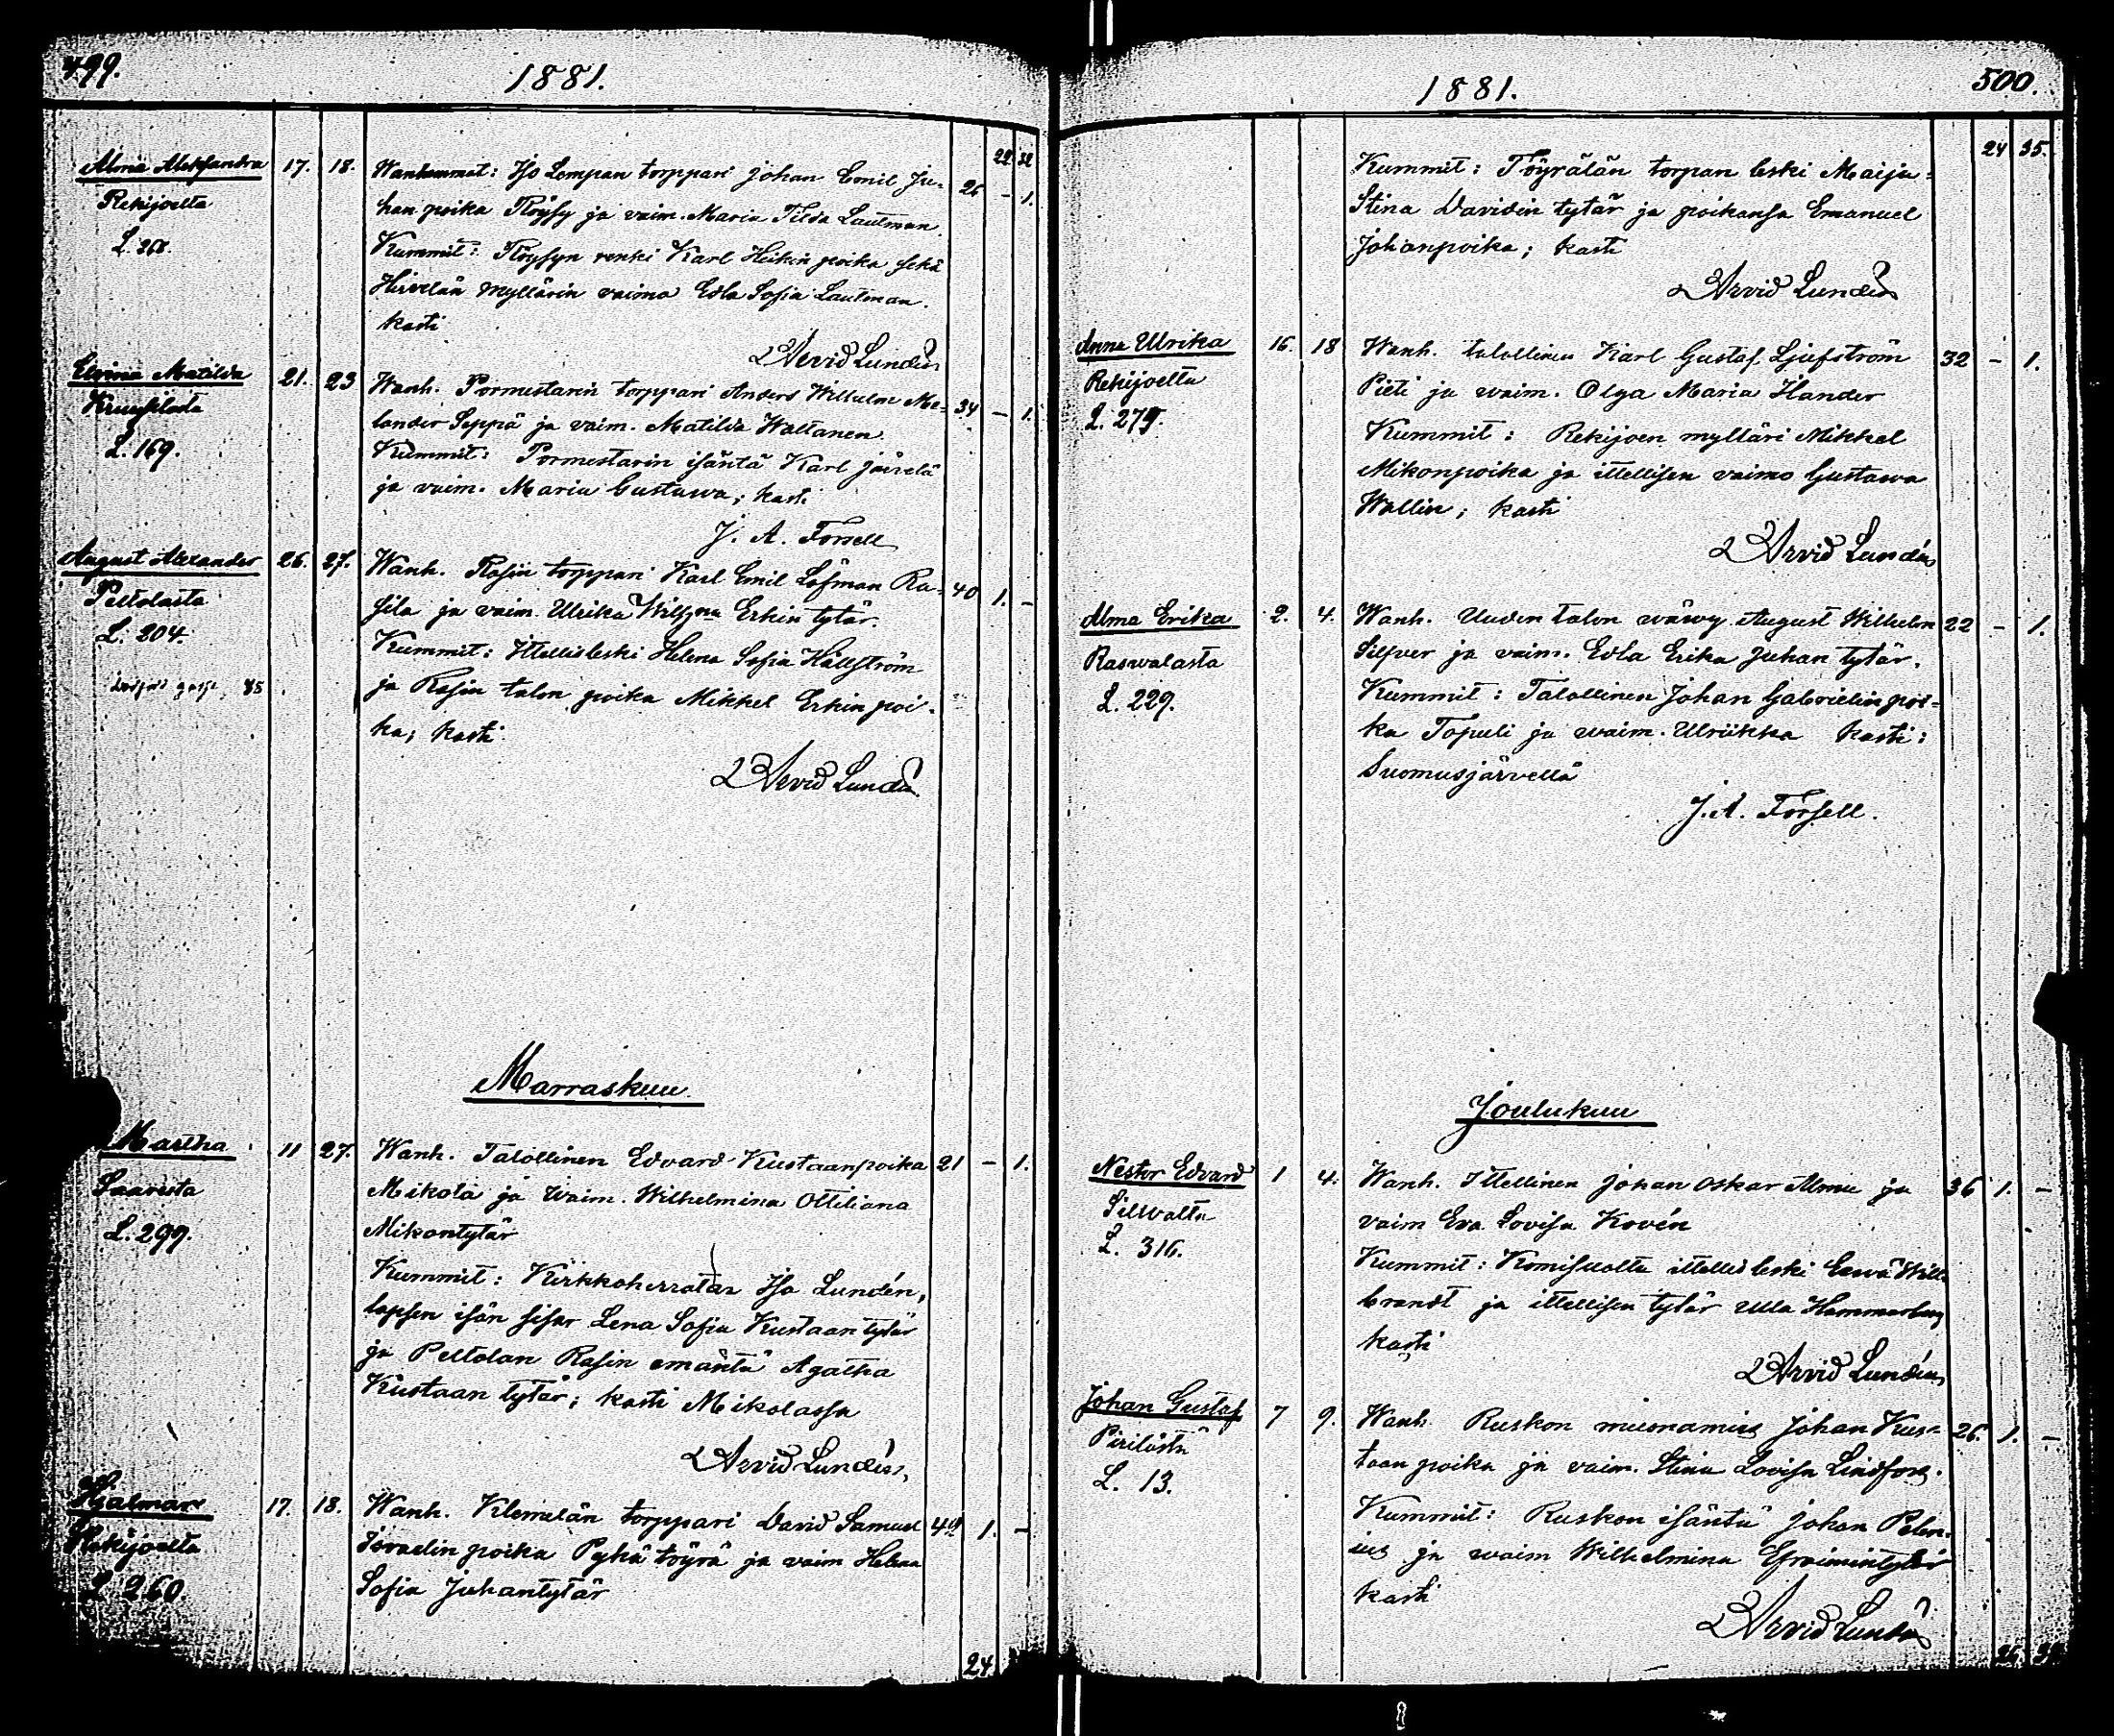 499.
1881.
22. 32
Alma Aleksandra 17. 18. Wanhemmat: Iso Lempan torppari Johan Emil Ju- 26 - 1.
Rekijoelta
hanpoika Flöysy ja vaim. Maria Tilda Lautman.
L. 268.
Kummit: Flöysyn renki Karl Heikin poika sekä
Hirvelän myllärin vaimo Edla Sofia Lautman.
kasti
Arvid Lundén
Elvina Matilda 21. 23 Wanh. Pormestarin torppari Anders Wilhelm Me- 34 - 1.
Kruusilasta
lander Seppä ja vaim. Matilda Waltanen.
L. 169.
Kummit: Pormestarin isäntä Karl Järvelä
ja vaim. Maria Gustawa; kasti
J. A. Forsell
August Alexander 26. 27. Wanh. Rasin torppari Karl Emil Löfman Ra- 40 1. -
Peltolasta
sila ja vaim. Ulrika Wilhma Erkin tytär.
L. 204.
Kummit: Ittellis leski Helena Sofia Källström
85
ja Rasin talon poika Mikkel Erkin poi-
ka; kasti
Arvid Lundén
Marraskuu.
Martha 11 27. Wanh. Talollinen Edvard Kustaanpoika 21 - 1.
Saaresta
Mikola ja waim. Wilhelmina Ottiliana
Mikontytär
L. 299.
Kummit: Kirkkoherratar Isa Lundén,
lapsen isän sisar Lena Sofia Kustaan tytär
ja Peltolan Rasin emäntä Agatha
Kustaan tytär; kasti Mikolassa
Arvid Lundén,
Hjalmar 17. 18. Wanh. Klemelän torppari David Samuel 1. -
Rekijoelta
Israelin poika Pyhätöyrä ja vaim Helena
L. 260.
Sofia Juhantytär
24
1881.
500.
24 35.
Kummit: Töyrälän torpan leski Maija-
Stina Davidin tytär ja poikansa Emanuel
Johanpoika; kasti
Arvid Lundén
Anna Ulrika 16. 18 Wanh. talollinen Karl Gustaf Ljufström 32 - 1.
Rekijoelta
Pieti ja waim. Olga Maria Hander
L. 279.
Kummit: Rekijoen mylläri Mikkel
Mikonpoika ja ittellisen vaimo Gustawa
Wallin; kasti
Arvid Lundén
Alma Erika 2. 4. Wanh. Uuden talon wäwy August Wilhelm 22 - 1.
Raswalasta
Silfver ja vaim. Edla Erika Juhan tytär.
L. 229.
Kummit: Talollinen Johan Gabrielin poi-
ka Topuli ja waim. Ulriikka kasti:
Suomusjärvellä
J. A. Forsell.
Joulukuu
Nestor Edvard 1 4. Wanh. Ittellinen Johan Oskar Alma ja 36 1. -
Silwolta
vaim Eva Lovisa Kovén
L. 316.
Kummit: Komisuolta ittellis leski Eewa Wille-
brandt ja ittellisen tytär Ulla Hammarberg
kasti
Arvid Lundén
Johan Gustaf 7 9. Wanh. Ruskon muonamies Johan Kus- 26. 1. -
Pirilästä
taan poika ja vaim. Stina Lovisa Lindfors.
L. 13.
Kummit: Ruskon isäntä Johan Pelen-
ius ja waim Wilhelmina Efraimintytär
kasti
Arvid Lundén